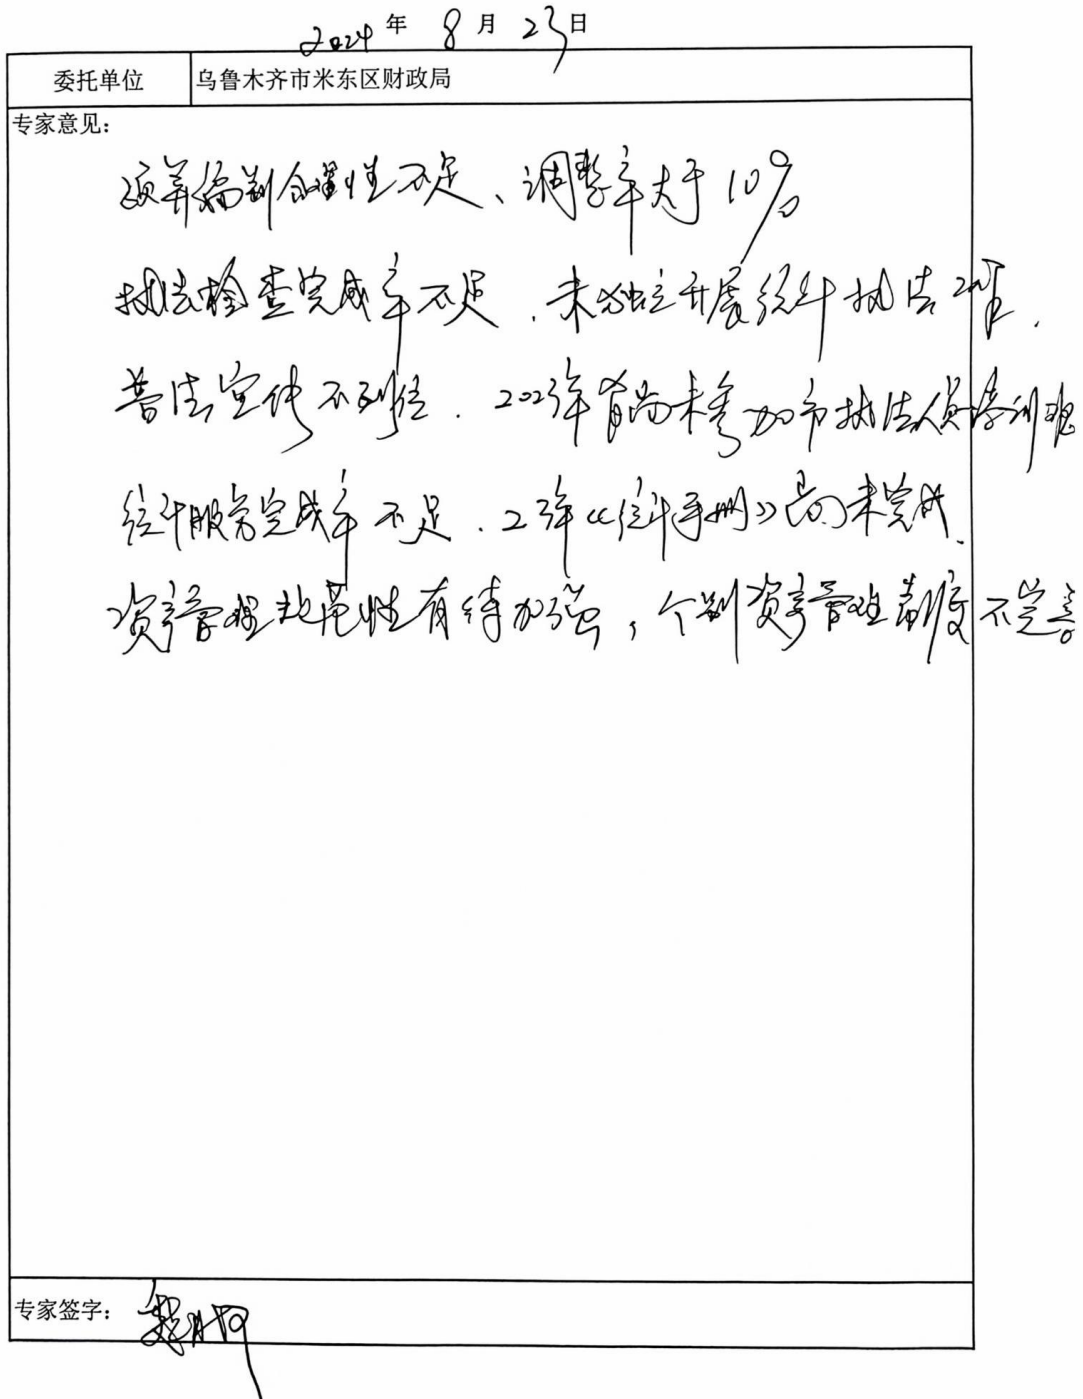 2024 年 8 月 23 日
委托单位 乌鲁木齐市米东区财政局
专家意见：
预算编制合理性不足、调整率大于10%
执法检查完成率不足，未独立开展统计执法工作.
普法宣传不到位. 2023年尚未参加市执法人员培训班
统计服务完成率不足. 23年《统计手册》尚未完成.
资产管理规范性有待加强，个别资产管理制度不完善
专家签字：